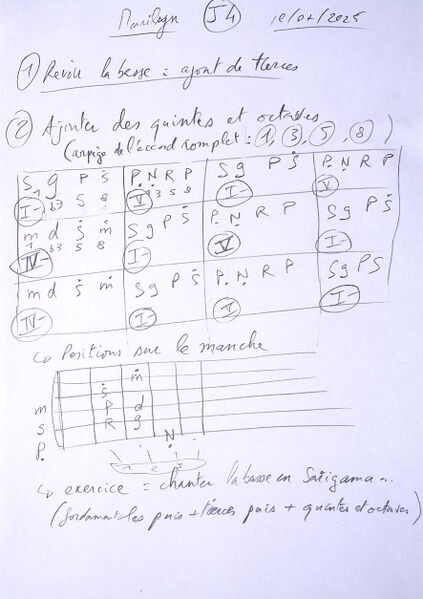 Marilyn J4 10/04/2025
① Revoir la basse : ajout de tierces
② Ajouter des quintes et octaves
(arpège de l'accord complet : ①, ③, ⑤, ⑧)
S g P Ṡ P̣ Ṇ R P S g P Ṡ P̣ Ṇ R P
1 b3 5 8 1 3 5 8
I- V I- V
m d ṡ ṁ S g P Ṡ P̣ Ṇ R P S g P Ṡ
1 b3 5 8
IV- I- V I-
m d ṡ ṁ S g P Ṡ P̣ Ṇ R P S g P S
IV- I- V I-
↳ Positions sur le manche
ṁ
ṡ
m P d
S R g
P̣ Ṇ
1 2 3
↳ exercice = chanter la basse en Sarigama...
(fondamentales puis + tierces puis + quintes et octaves)